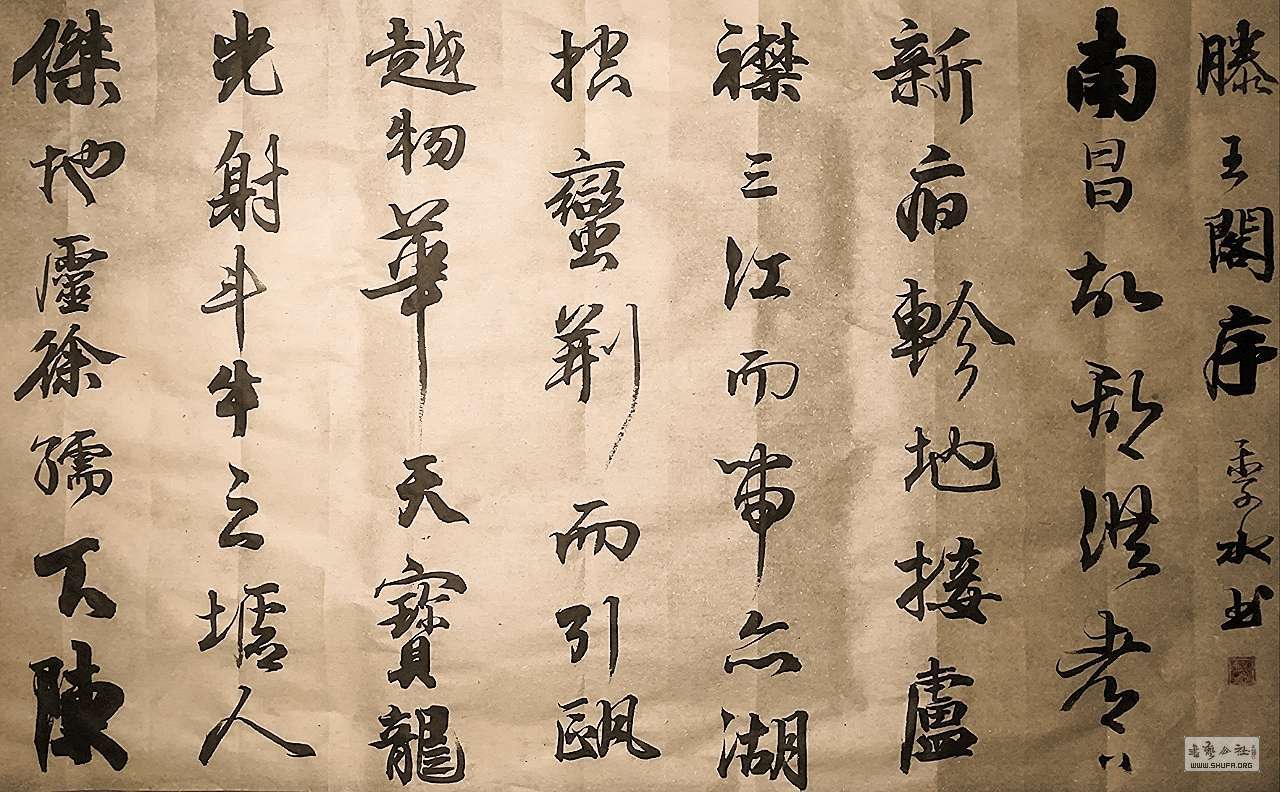 滕王閣序 季水书
南昌故郡洪都
新府軫地接盧
襟三江而帶五湖
控蠻荆而引甌
越物華天寶龍
光射斗牛之墟人
傑地靈徐孺下陳
WWW.SHUFA.ORG